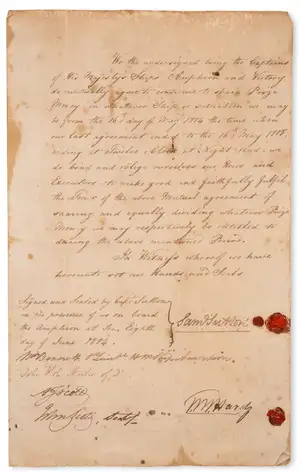 We the undersigned being the Captains
of His Majestys Ships Amphion and Victory
do mutually agree to continue to share Prize
Money in whatever Ship or situation we may
be from the 16th day of May 1804 the time when
our last agreement ended to the 16th May 1805
ending at Twelve oClock at Night And we
do bind and oblige ourselves our Heirs and
Executors to make good and faithfully fulfil
the Tenor of the above Mutual agreement of
sharing and equally dividing whatever Prize
Money we may respectively be entitled to
during the above mentioned Period.
In Witness whereof we have
hereunto set our Hands and Seals
Signed and Sealed by Captn Sutton
in the presence of us on board
the Amphion at Sea, Eighth
day of June 1804.
Saml Sutton
Wm Bennett Lieut HMS
John
A J Scott
T M Hardy